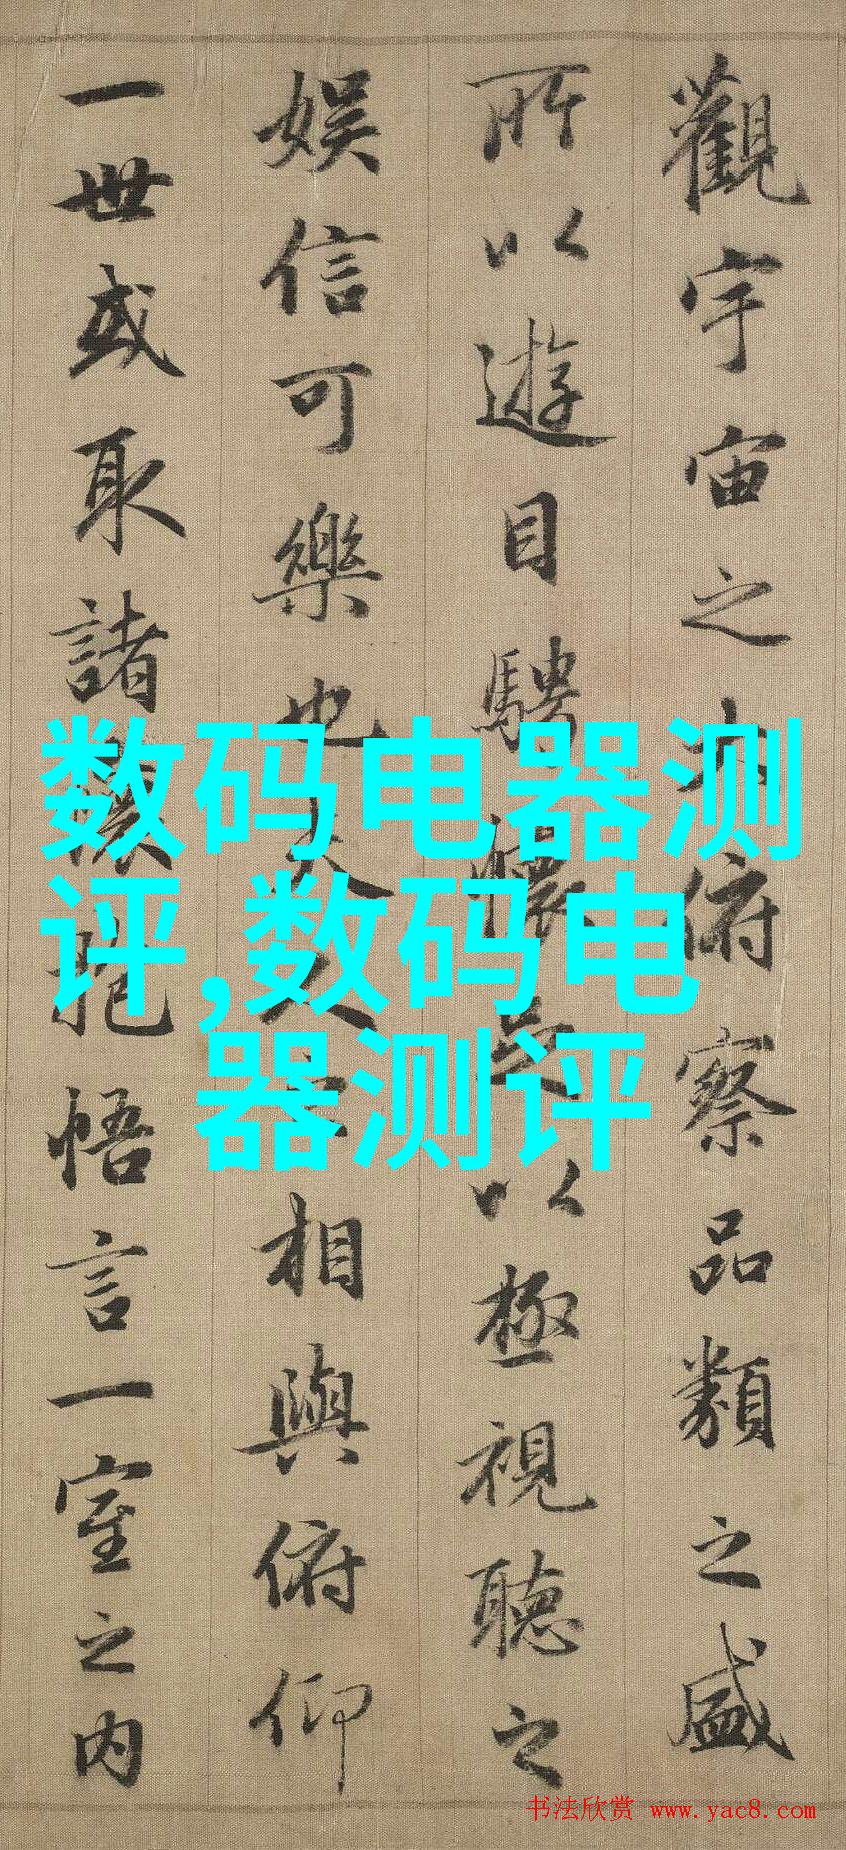 觀宇宙之大俯察品類之盛
所以遊目騁懷足以極視聽之
娛信可樂也夫人之相與俯仰
一世或取諸懷抱悟言一室之內
数码电器测
评,数码电
器测评
书法欣赏 www.yac8.com